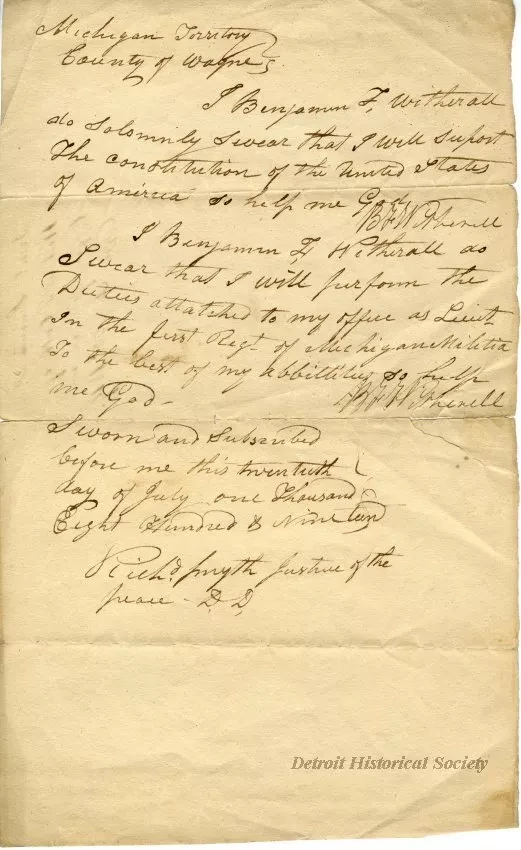 Michigan Territory
County of Wayne
I Benjamin F, Witherall
do Solomnly Swear that I will Suport
The constitution of the United States
of America so help me God
B F Witherell
I Benjamin F, Witherall do
Swear that I will perform the
Duties attatched to my office as Lieut
In the first Regt of Michigan Militia
To the best of my abbillities so help
me God -
B F Witherell
Sworn and Subscribed
before me this twentieth
day of July one Thousand
Eight Hundred & Nineteen
Richd Smyth Justice of the
peace - D. D.
Detroit Historical Society